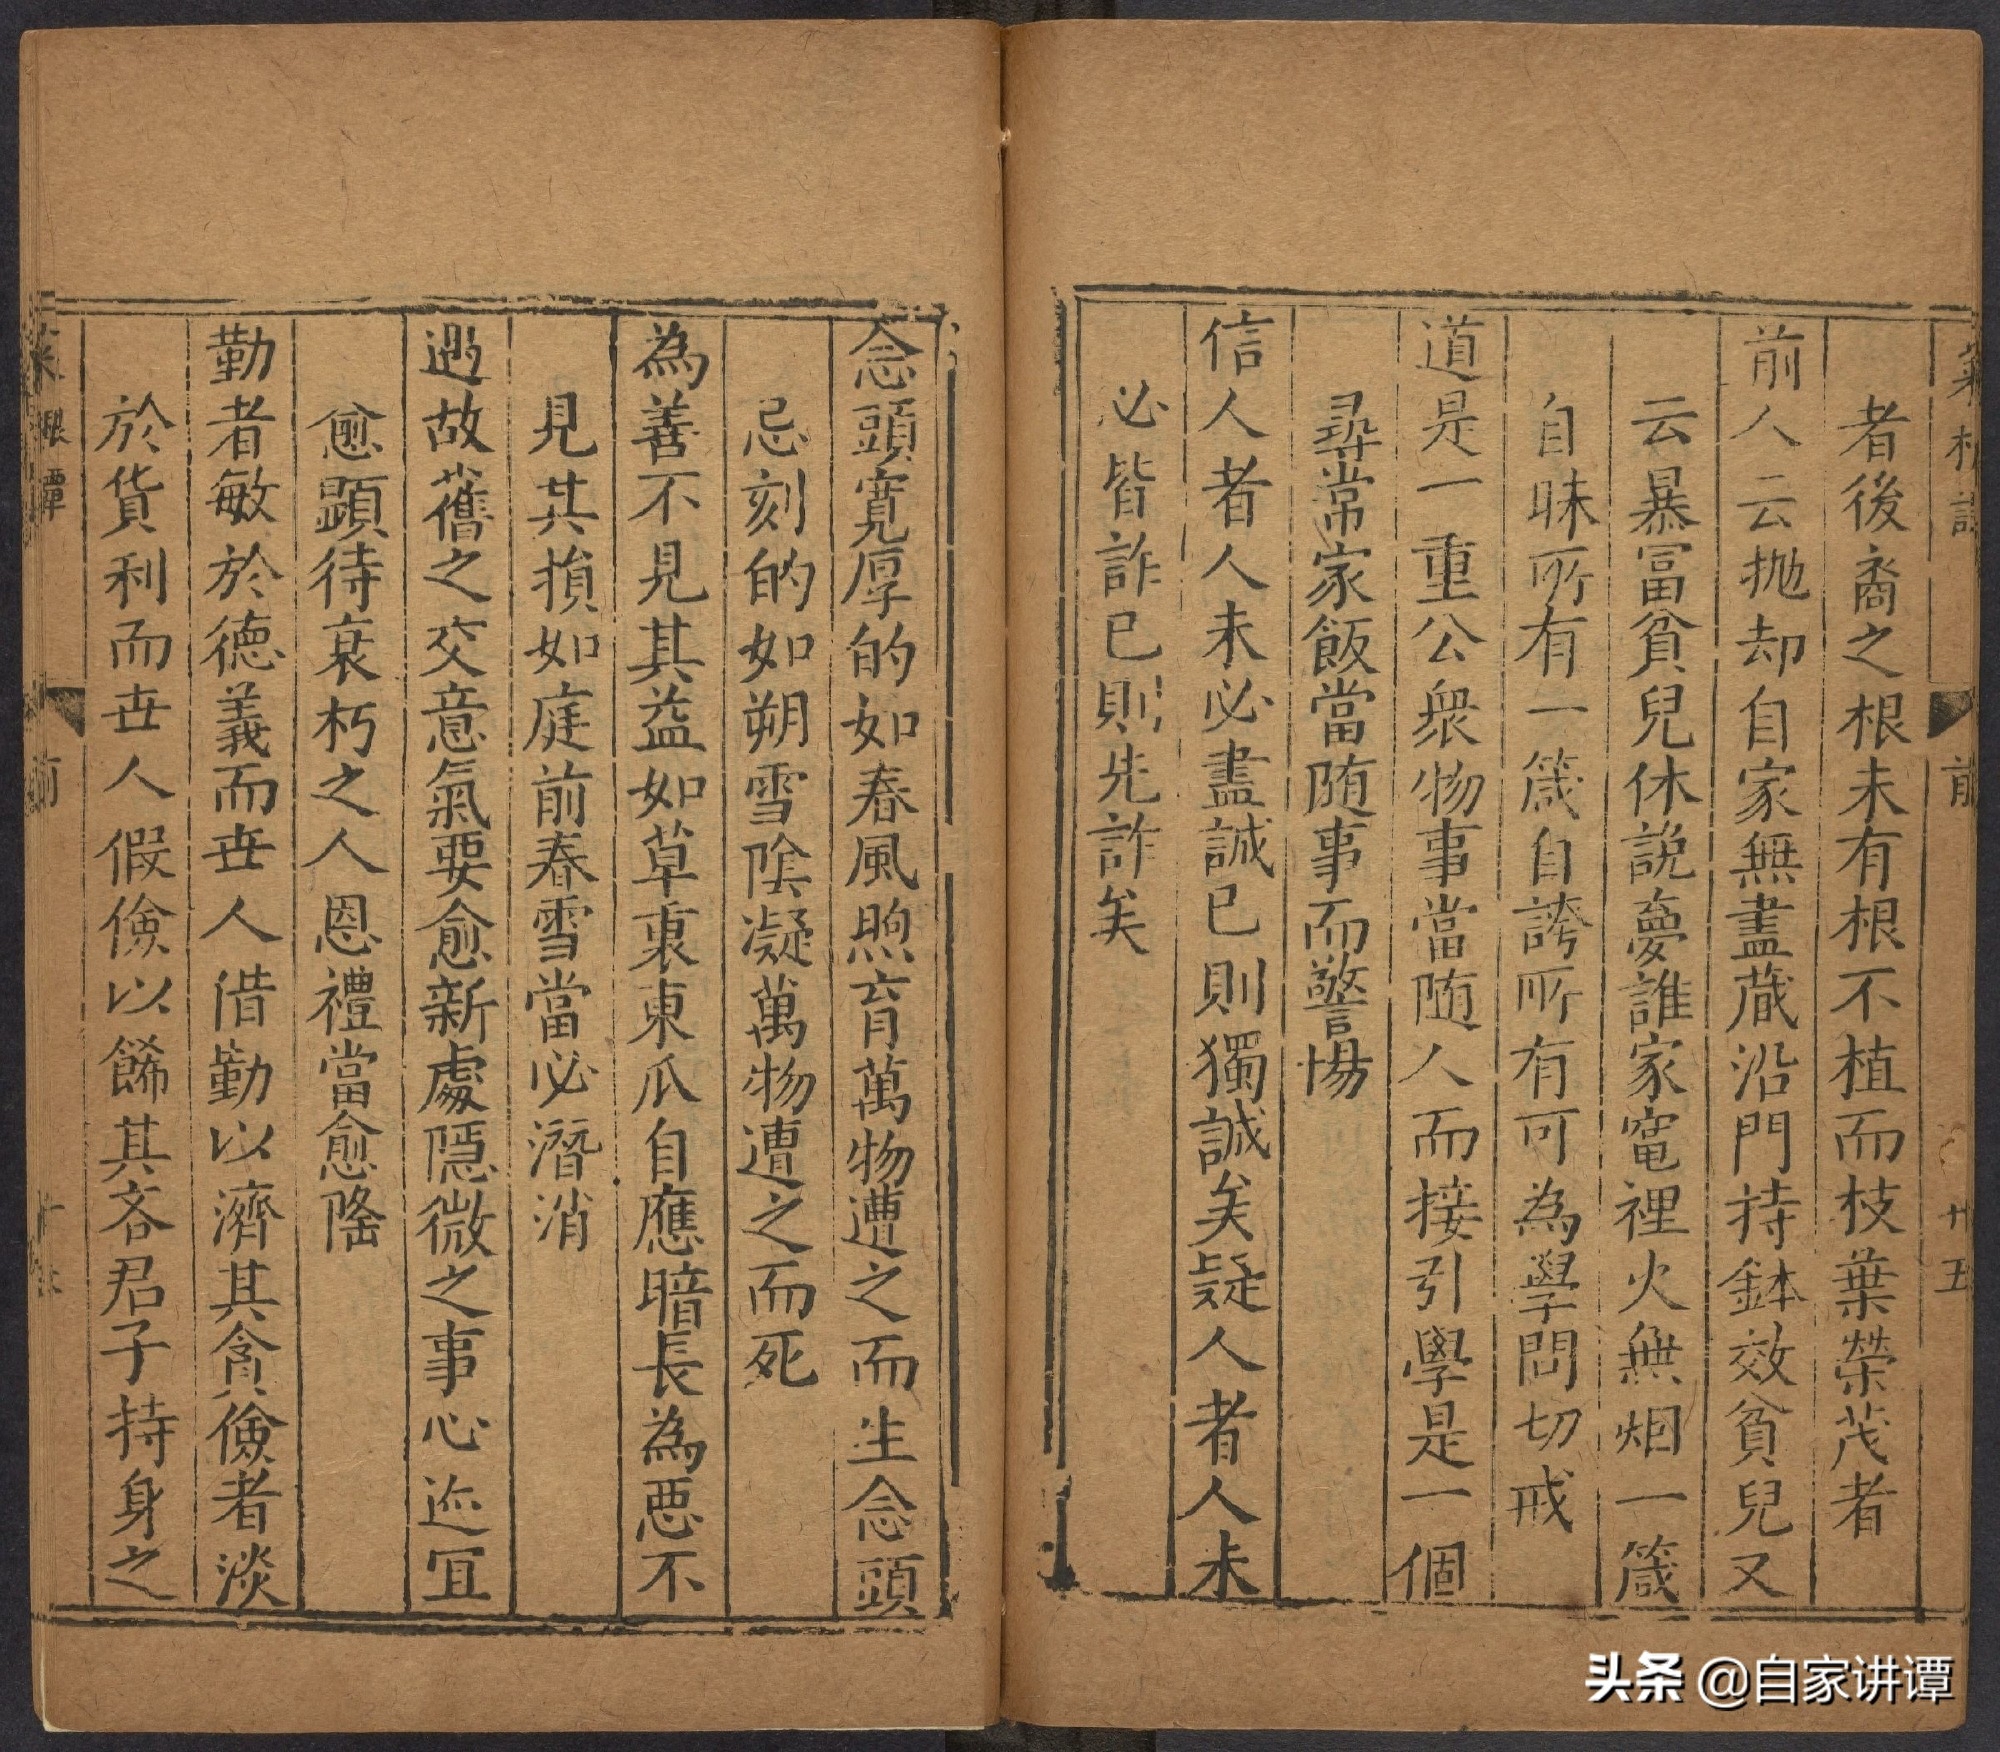 菜根譚
前
廿五
者後裔之根未有根不植而枝葉榮茂者
前人云抛却自家無盡蔵沿門持鉢效貧兒又
云暴冨貧兒休説夢誰家竃裡火無烟一箴
自昧所有一箴自誇所有可為學問切戒
道是一重公衆物事當随人而接引學是一個
尋常家飯當随事而警惕
信人者人未必盡誠已則獨誠矣疑人者人未
必皆詐已則先詐矣
念頭寛厚的如春風煦育萬物遭之而生念頭
忌刻的如朔雪陰凝萬物遭之而死
為善不見其益如草裏東瓜自應暗長為悪不
見其損如庭前春雪當必潛消
遇故舊之交意氣要愈新處隱微之事心迹宜
愈顕待衰朽之人恩禮當愈隆
勤者敏於德義而世人借勤以濟其貪儉者淡
於貨利而世人假儉以餙其吝君子持身之
菜根譚
前
头条 @自家讲谭